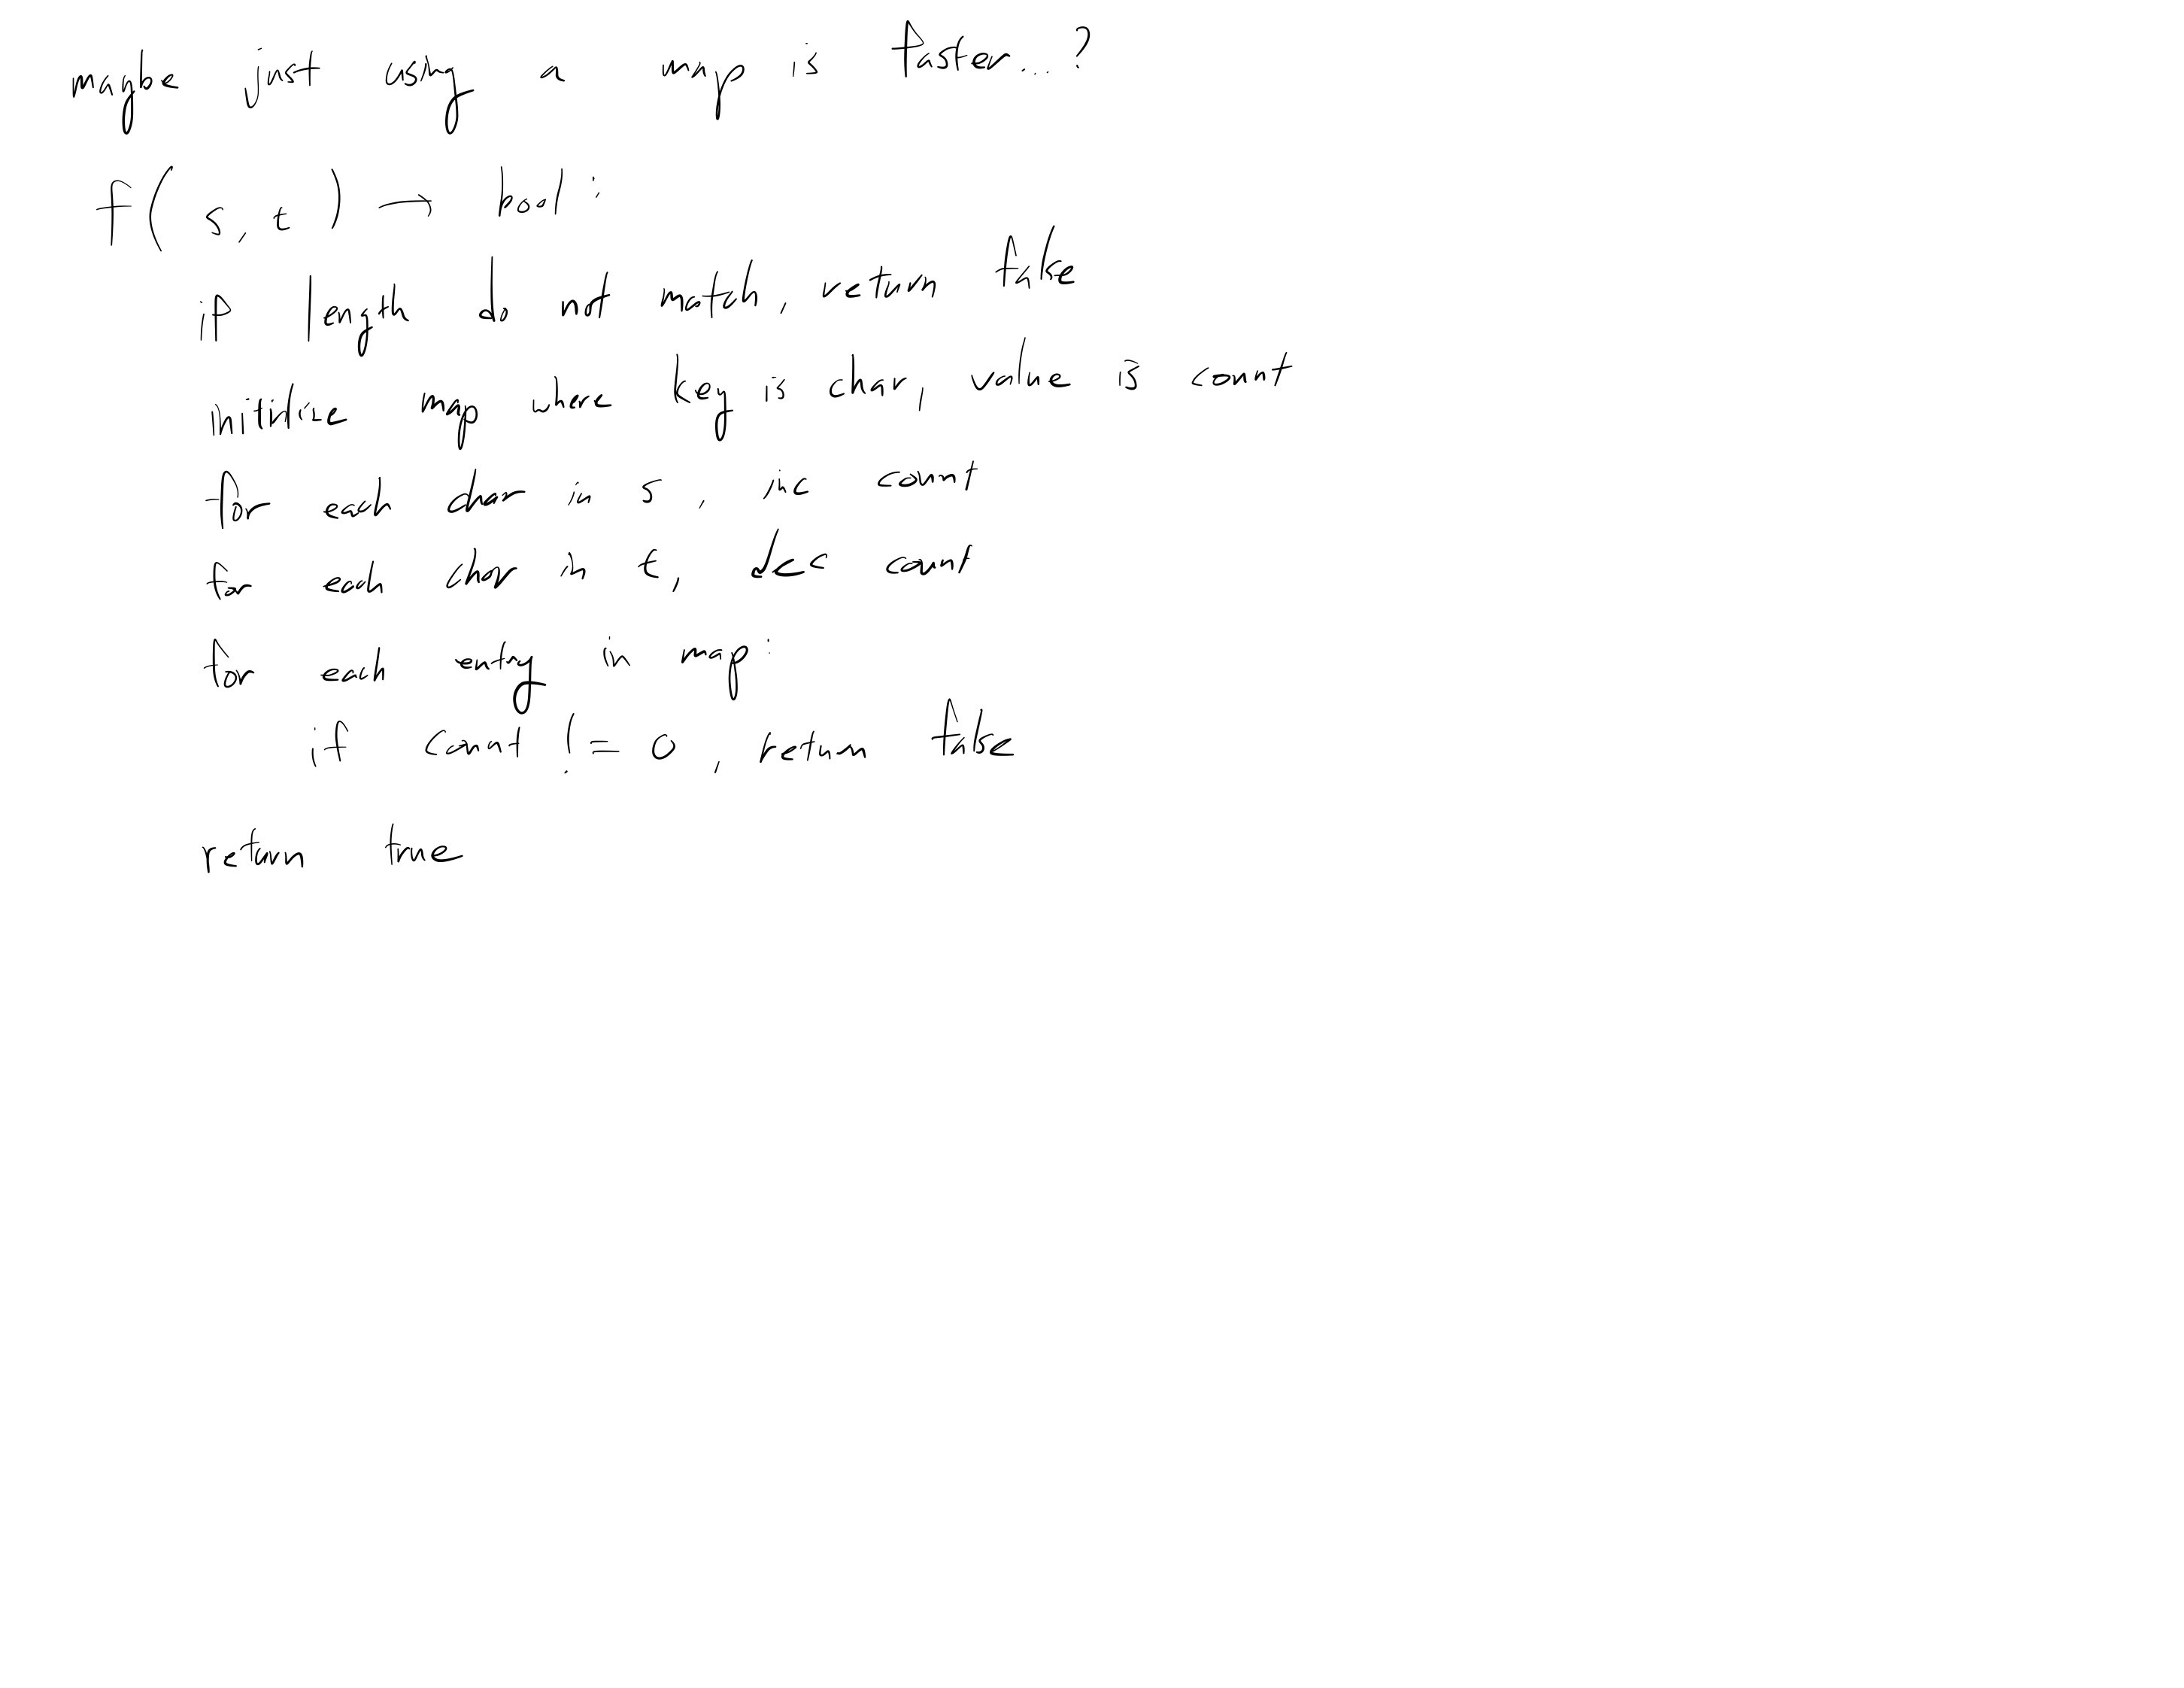 maybe just using a map is faster...?
f( s, t ) → bool :
if length do not match, return false
initialize map where key is char, value is count
for each char in s, inc count
for each char in t, dec count
for each entry in map :
if count != 0, return false
return true